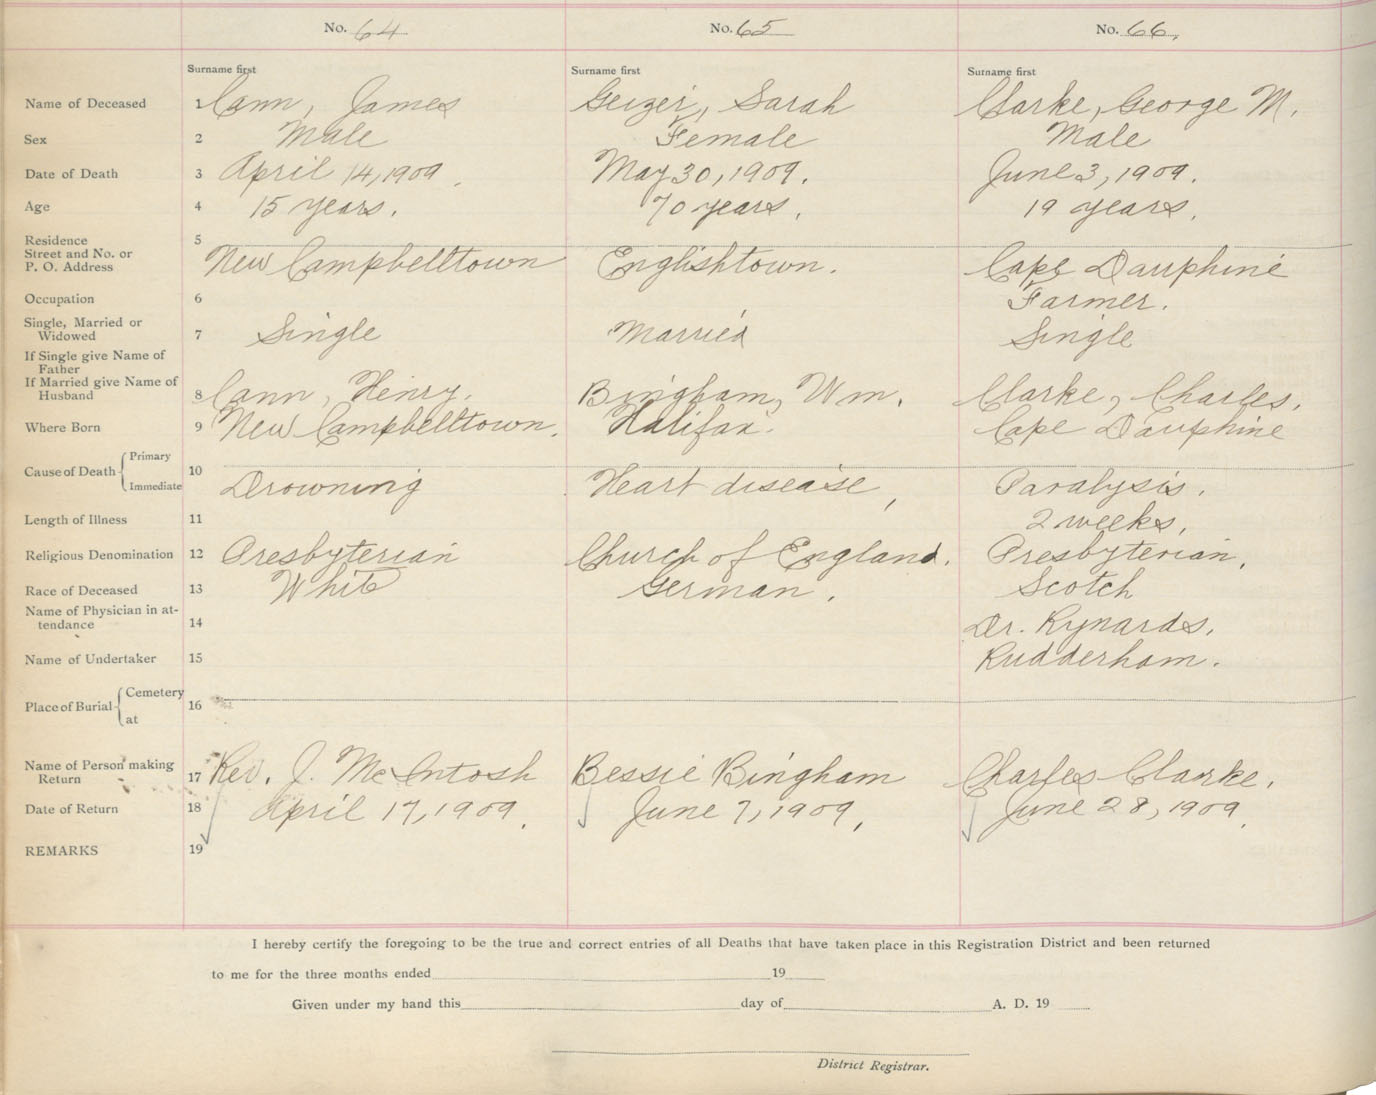 No. 64 No. 65 No. 66.
Surname first Surname first Surname first
Name of Deceased 1 Cann, James Geizer, Sarah Clarke, George M.
Sex 2 Male Female Male
Date of Death 3 April 14, 1909. May 30, 1909. June 3, 1909.
Age 4 15 years. 70 years. 19 years.
Residence 5
Street and No. or
P. O. Address New Campbelltown Englishtown. Cape Dauphine
Occupation 6 Farmer.
Single, Married or
Widowed 7 Single Married Single
If Single give Name of
Father
If Married give Name of
Husband 8 Cann, Henry. Bingham, Wm. Clarke, Charles.
Where Born 9 New Campbelltown. Halifax. Cape Dauphine
Primary
Cause of Death 10
Immediate Drowning Heart disease, Paralysis.
Length of Illness 11 2 weeks.
Religious Denomination 12 Presbyterian Church of England. Presbyterian.
Race of Deceased 13 White German. Scotch
Name of Physician in at-
tendance 14 Dr. Rynards.
Name of Undertaker 15 Rudderham.
Cemetery
Place of Burial 16
at
Name of Person making
Return 17 Rev. J. McIntosh Bessie Bingham Charles Clarke.
Date of Return 18 April 17, 1909. June 7, 1909. June 28, 1909.
REMARKS 19
I hereby certify the foregoing to be the true and correct entries of all Deaths that have taken place in this Registration District and been returned
to me for the three months ended 19
Given under my hand this day of A. D. 19
District Registrar.